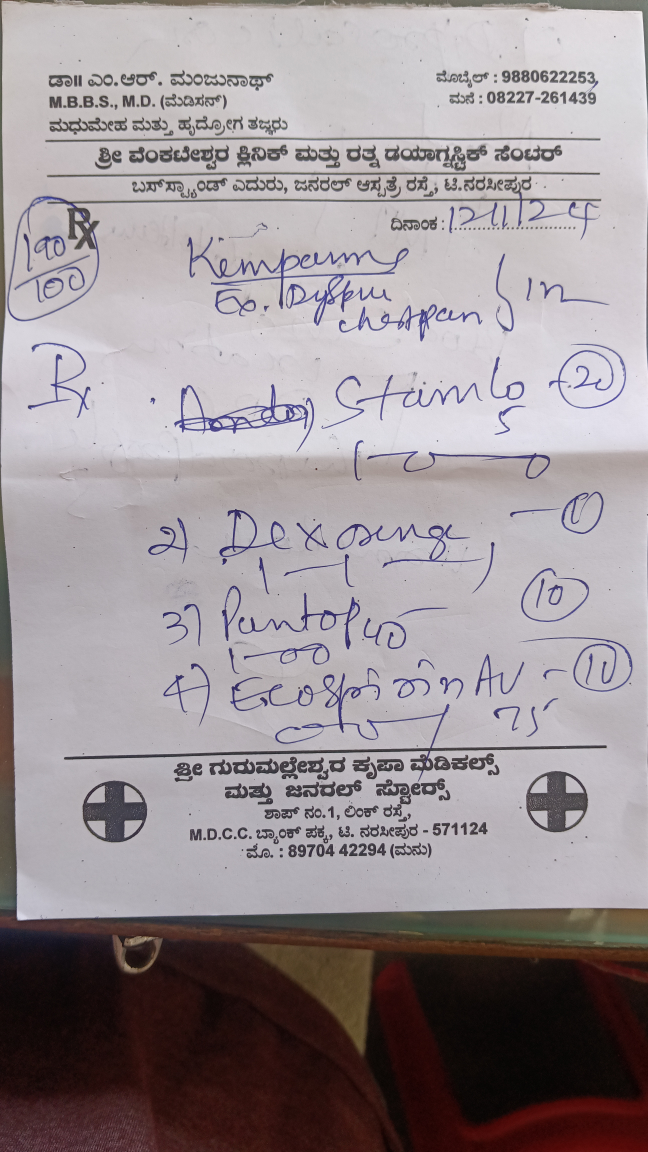 ಡಾ॥ ಎಂ.ಆರ್. ಮಂಜುನಾಥ್
M.B.B.S., M.D. (ಮೆಡಿಸನ್)
ಮಧುಮೇಹ ಮತ್ತು ಹೃದ್ರೋಗ ತಜ್ಞರು
ಮೊಬೈಲ್ : 9880622253,
ಮನೆ : 08227-261439
ಶ್ರೀ ವೆಂಕಟೇಶ್ವರ ಕ್ಲಿನಿಕ್ ಮತ್ತು ರತ್ನ ಡಯಾಗ್ನಸ್ಟಿಕ್ ಸೆಂಟರ್
ಬಸ್‌ಸ್ಟ್ಯಾಂಡ್ ಎದುರು, ಜನರಲ್ ಆಸ್ಪತ್ರೆ ರಸ್ತೆ, ಟಿ.ನರಸೀಪುರ
Rx
ದಿನಾಂಕ : 12/11/24
190/100
Ex.
Rx
Stamlo - 20
5
1-0-0
2)
3) Pantop 40 - 10
1-0-0
4) Ecosprin AV - 10
75
ಶ್ರೀ ಗುರುಮಲ್ಲೇಶ್ವರ ಕೃಪಾ ಮೆಡಿಕಲ್ಸ್
ಮತ್ತು ಜನರಲ್ ಸ್ಟೋರ್ಸ್
ಶಾಪ್ ನಂ.1, ಲಿಂಕ್ ರಸ್ತೆ,
M.D.C.C. ಬ್ಯಾಂಕ್ ಪಕ್ಕ, ಟಿ. ನರಸೀಪುರ - 571124
ಮೊ. : 89704 42294 (ಮನು)